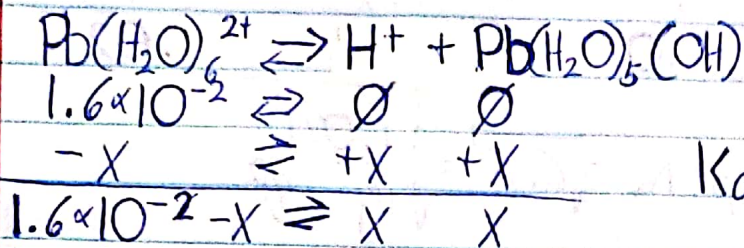 Pb(H₂O)₆²⁺ ⇌ H⁺ + Pb(H₂O)₅(OH)
1.6×10⁻² ⇌ Ø Ø
-x ⇌ +x +x Ka
1.6×10⁻²-x ⇌ x x